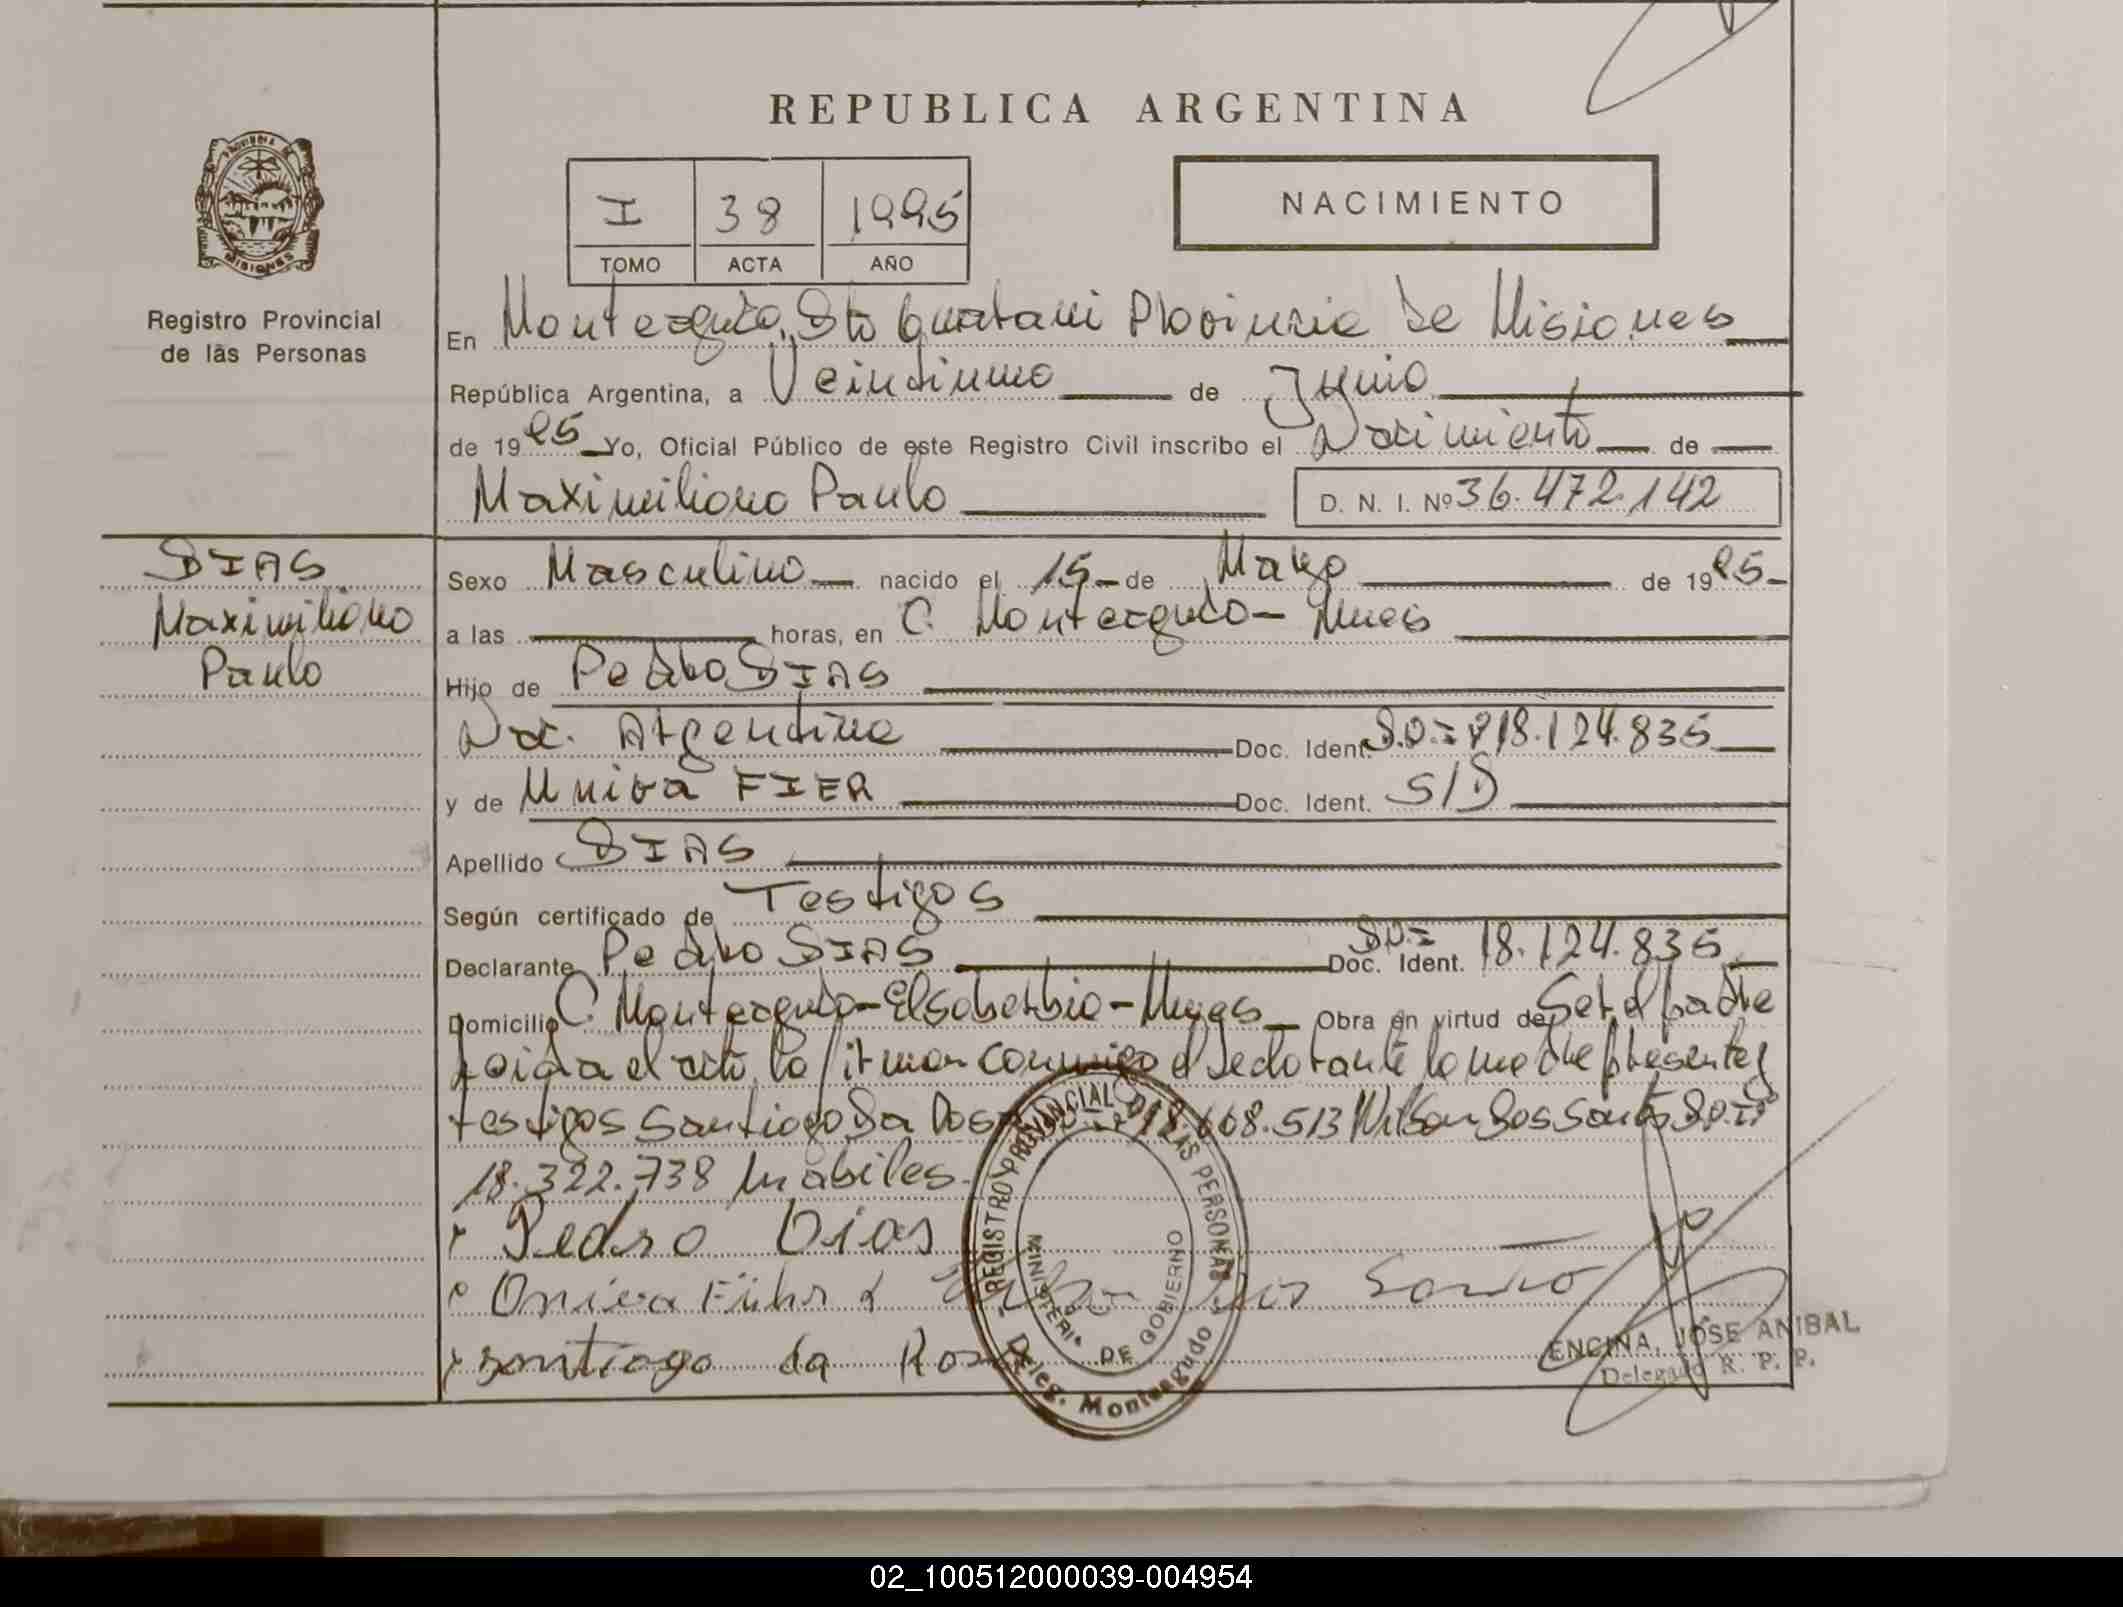 REPUBLICA ARGENTINA
I 38 1995
TOMO ACTA AÑO
NACIMIENTO
PROVINCIA DE
MISIONES
Registro Provincial
de las Personas
En Monteagudo, Dto Guarani Provincia de Misiones
República Argentina, a Veintiuno de Junio
de 1995 Yo, Oficial Público de este Registro Civil inscribo el Nacimiento de
Maximiliano Paulo D. N. I. Nº 36.472.142
DIAS
Maximiliano
Paulo
Sexo Masculino nacido el 15 de Marzo de 1995
a las horas, en C. Monteagudo - Mnes
Hijo de Pedro DIAS
Nac. Argentina Doc. Ident. D.N.I Nº 18.124.835
y de Unira FIER Doc. Ident. S/D
Apellido DIAS
Según certificado de Testigos
Declarante Pedro DIAS Doc. Ident. D.N.I 18.124.835
Domicilio C. Monteagudo - El soberbio - Mnes Obra en virtud de Ser el padre
leida el acta, la firman conmigo el declarante la madre presentes
testigos Santiago Da Rosa 668.513 Wilson Dos Santos D.N.I Nº
18.322.738 habiles.
Pedro Dias
Onira Führ dos Santo
Santiago da Rosa
REGISTRO PROVINCIAL DE LAS PERSONAS
MINISTERIO DE GOBIERNO
Deleg. Monteagudo
ENCINA, JOSE ANIBAL
Delegado R. P. P.
02_100512000039-004954